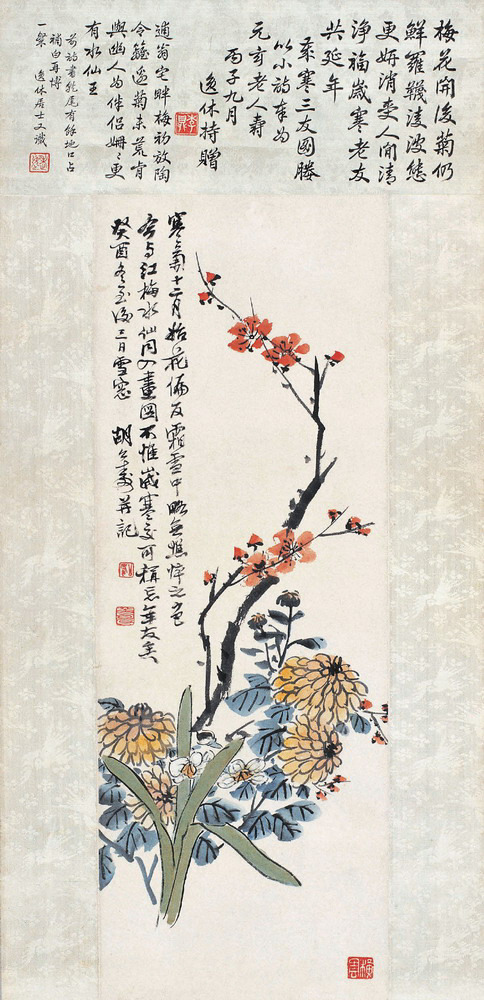 梅花開後菊仍
鮮羅韈淩波態
更妍消受人間清
淨福歲寒老友
共延年
寒三友圖
以小詩奉為
元亥老人壽
丙子九月
逸休持贈
逋翁宅畔梅初放陶
令籬邊菊未荒肯
與幽人為伴侶姍〻更
有水仙王
前詩書就尾有餘地口占
補白再博
一粲 逸休居士又識
寒菊十二月始花偏友霜雪中略無憔悴之色
与红梅水仙同入畫圖不惟歲寒交可稱忘年友矣
癸酉冬至後三日雪窓 胡公壽并記
橫雲